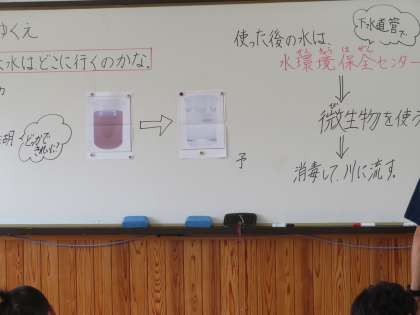 ゆくえ
水はどこに行くのかな。
どこかで
きれいに?
予
使った後の水は、
下水道管で、
みずかんきょうほぜん
水環境保全センター
微生物を使
消毒して、川に流す。